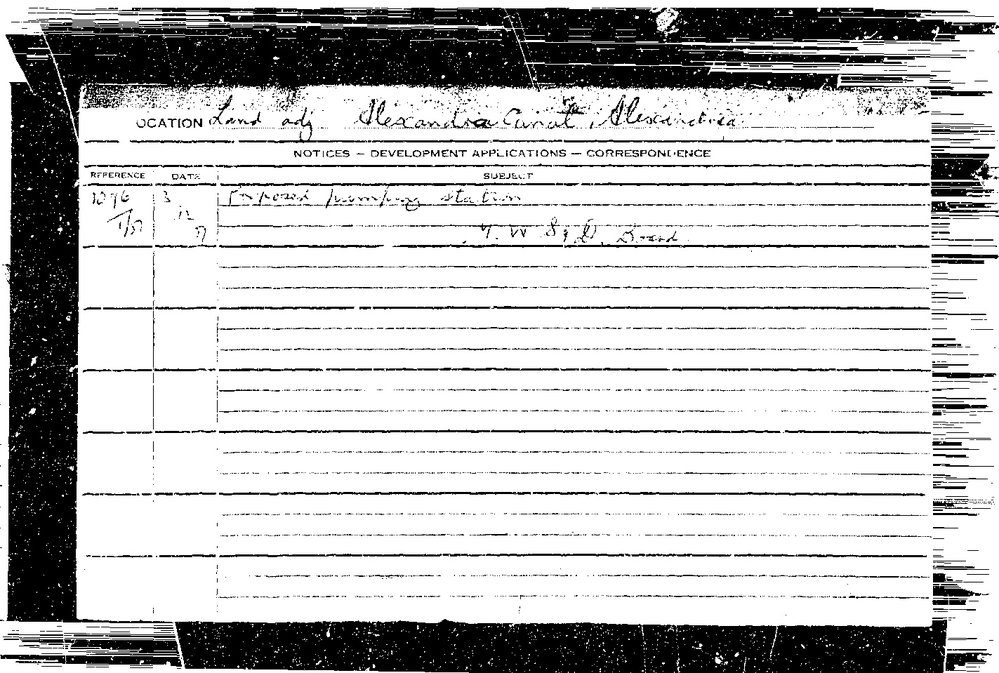 OCATION Land adj. Alexandra Canal, Alexandria
NOTICES — DEVELOPMENT APPLICATIONS — CORRESPONDENCE
REFERENCE DATE SUBJECT
1096 3 Proposed pumping station
12
M. W. S. & D. Board